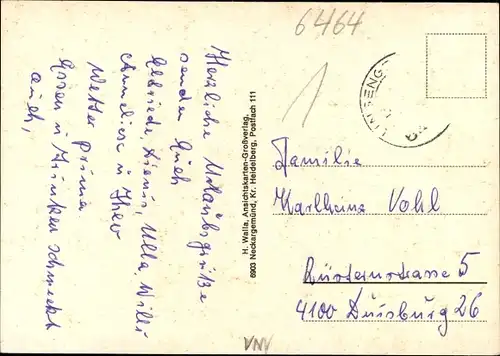 6464
Herzliche Urlaubsgrüße
senden Euch
Elfriede, Willi
Annelise u Theo
Wetter prima
Essen u Trinken schmeckt
auch,
H. Walla, Ansichtskarten-Großverlag,
6903 Neckargemünd, Kr. Heidelberg, Postfach 111
Familie
Karlheinz Vohl
5
4100 Duisburg 26